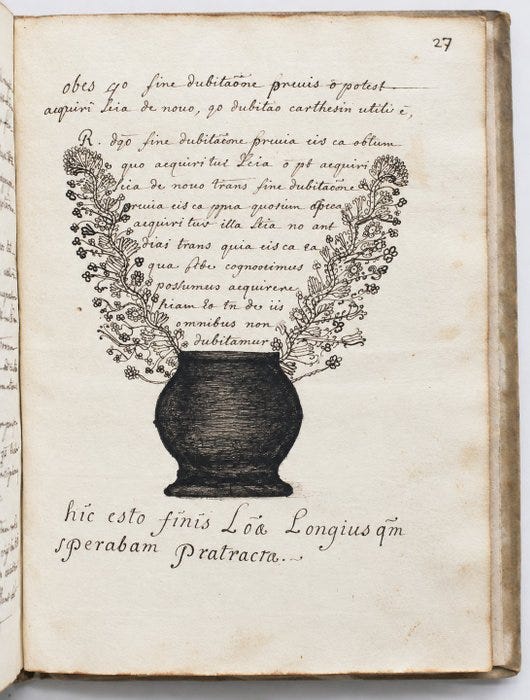 27
obes go sine dubitaõne prævis õ potest
acquiri sēia de novo, go dubitaõ carthesin utilis ē,
R. dgo sine dubitaõne prævia eis ca obtum
quo acquiritur sēia õ pt acquiri
sēia de novo trans sine dubitaõne
prævia eis ca ppia quorum
acquiritur illa sēia no ant
dias trans quia eis ca ea
qua cognovimus
possumus acquirere
tn de iis
omnibus non
dubitamur
hīc esto fīnīs Lõæ Longius qm̄
sperabam Pratracta.